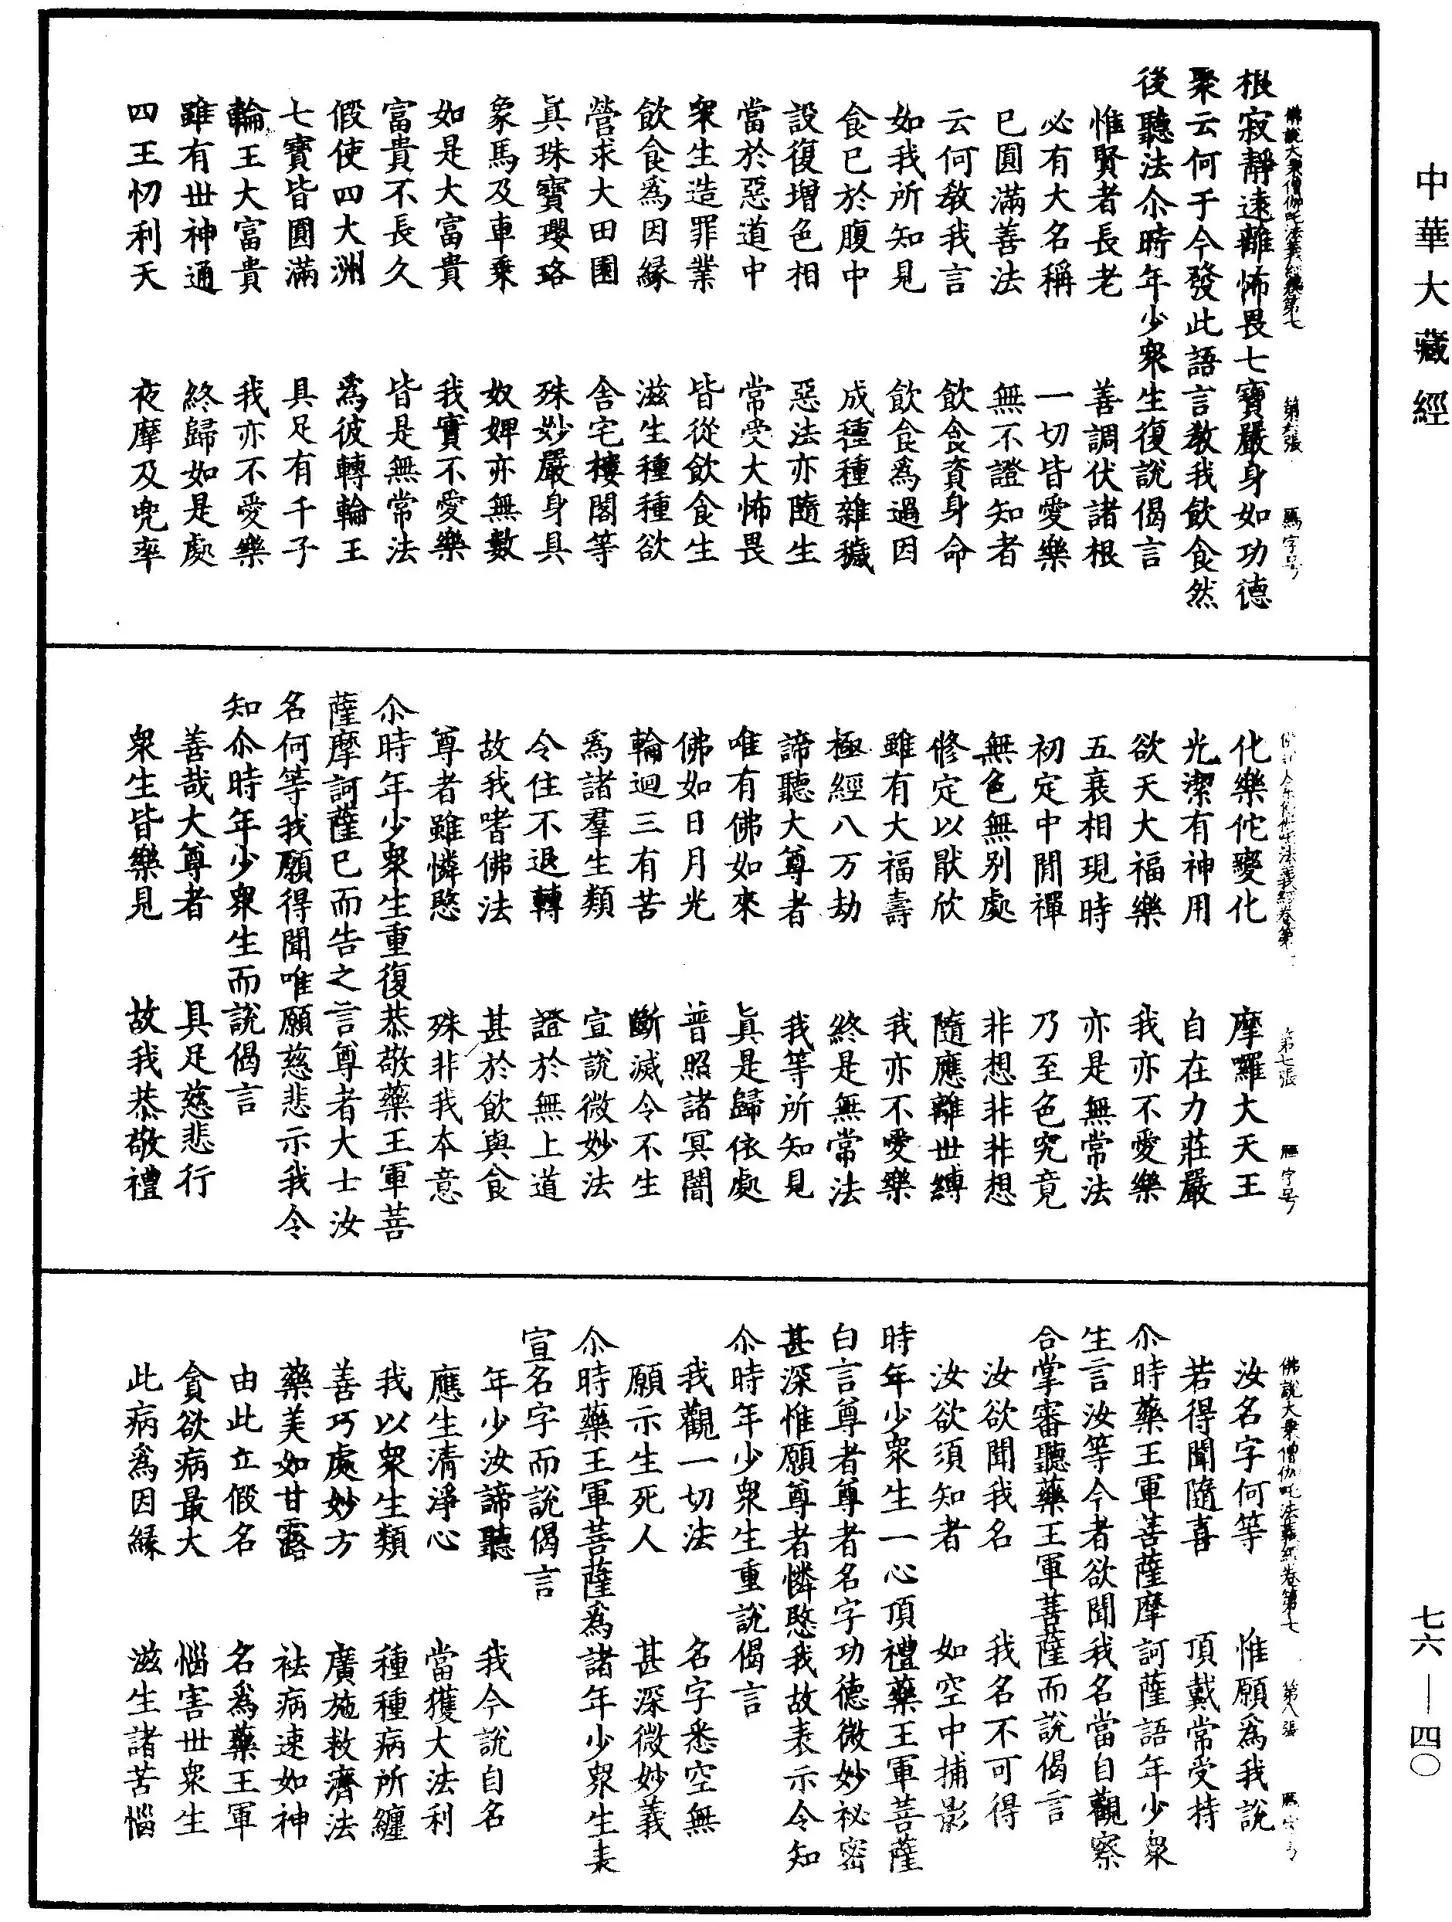 中華大藏經
佛說大乘僧伽吒法義經卷第七 第六張 鴈字号
根寂靜遠離怖畏七寶嚴身如功德
聚云何于今發此語言教我飲食然
後聽法尒時年少衆生復說偈言
惟賢者長老 善調伏諸根
必有大名稱 一切皆愛樂
已圓滿善法 無不證知者
云何教我言 飲食資身命
如我所知見 飲食爲過因
食已於腹中 成種種雜穢
設復增色相 惡法亦隨生
當於惡道中 常受大怖畏
衆生造罪業 皆從飲食生
飲食爲因緣 滋生種種欲
營求大田園 舍宅樓閣等
真珠寶瓔珞 殊妙嚴身具
象馬及車乘 奴婢亦無數
如是大富貴 我實不愛樂
富貴不長久 皆是無常法
假使四大洲 爲彼轉輪王
七寶皆圓滿 具足有千子
輪王大富貴 我亦不愛樂
雖有世神通 終歸如是處
四王忉利天 夜摩及兜率
第七張 字号
化樂佗變化 摩囉大天王
光潔有神用 自在力莊嚴
欲天大福樂 我亦不愛樂
五衰相現時 亦是無常法
初定中閒禪 乃至色究竟
無色無别處 非想非非想
修定以猒欣 隨應離世縛
雖有大福壽 我亦不愛樂
極經八万劫 終是無常法
諦聽大尊者 我等所知見
唯有佛如來 真是歸依處
佛如日月光 普照諸冥闇
輪迴三有苦 斷滅令不生
爲諸羣生類 宣說微妙法
令住不退轉 證於無上道
故我嗜佛法 甚於飲與食
尊者雖憐愍 殊非我本意
尒時年少衆生重復恭敬藥王軍菩
薩摩訶薩已而告之言尊者大士汝
名何等我願得聞唯願慈悲示我令
知尒時年少衆生而說偈言
善哉大尊者 具足慈悲行
衆生皆樂見 故我恭敬禮
佛說大乘僧伽吒法義經卷第七 第八張 字号
汝名字何等 惟願爲我說
若得聞隨喜 頂戴常受持
尒時藥王軍菩薩摩訶薩語年少衆
生言汝等今者欲聞我名當自觀察
合掌審聽藥王軍菩薩而說偈言
汝欲聞我名 我名不可得
汝欲須知者 如空中捕影
時年少衆生一心頂禮藥王軍菩薩
白言尊者尊者名字功德微妙祕密
甚深惟願尊者憐愍我故表示令知
尒時年少衆生重說偈言
我觀一切法 名字悉空無
願示生死人 甚深微妙義
尒時藥王軍菩薩爲諸年少衆生表
宣名字而說偈言
年少汝諦聽 我今說自名
應生清淨心 當獲大法利
我以衆生類 種種病所纏
善巧處妙方 廣施救濟法
藥美如甘露 祛病速如神
由此立假名 名爲藥王軍
貪欲病最大 惱害世衆生
此病爲因緣 滋生諸苦惱
七六—四〇